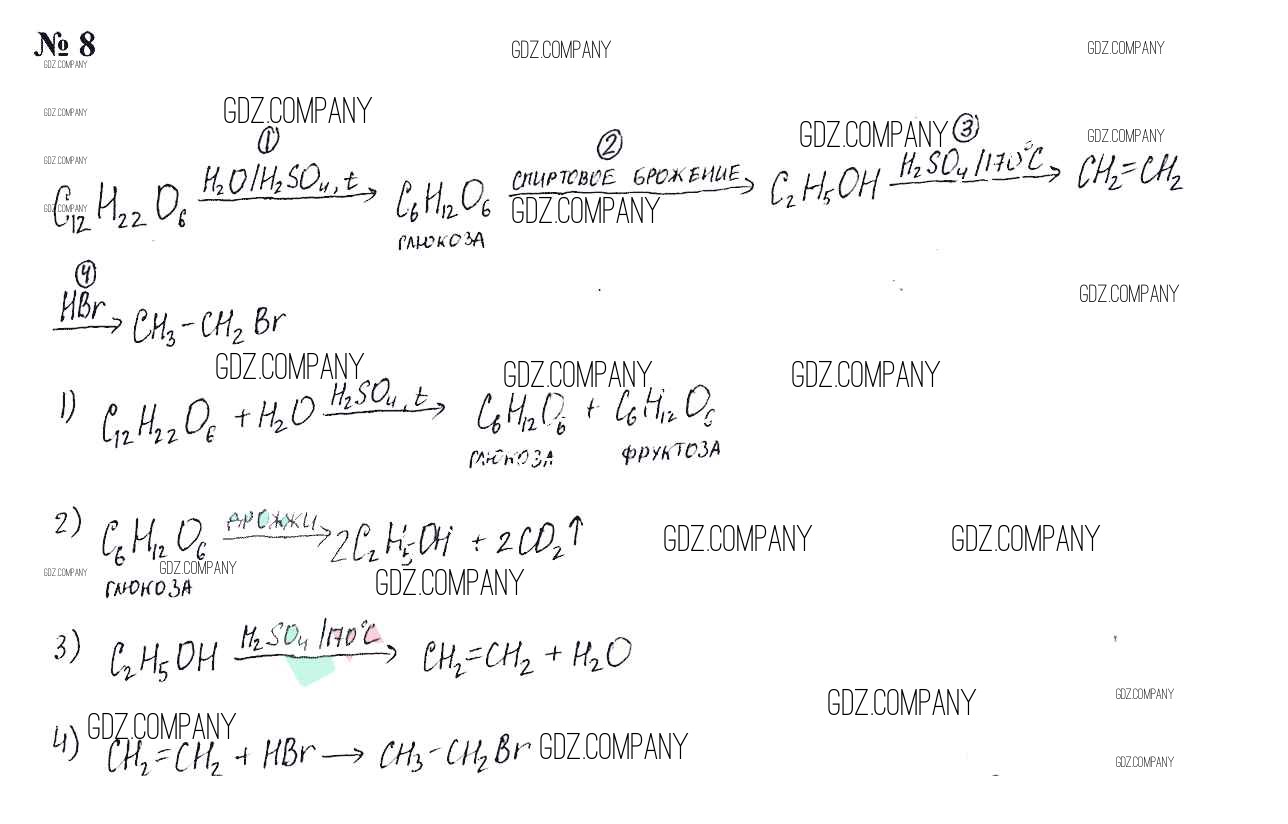 № 8
GDZ.COMPANY GDZ.COMPANY
GDZ.COMPANY
GDZ.COMPANY GDZ.COMPANY
① ② GDZ.COMPANY ③ GDZ.COMPANY
GDZ.COMPANY
C₁₂H₂₂O₆ H₂O/H₂SO₄, t → C₆H₁₂O₆ СПИРТОВОЕ БРОЖЕНИЕ → C₂H₅OH H₂SO₄/170°C → CH₂=CH₂
GDZ.COMPANY GDZ.COMPANY
ГЛЮКОЗА
④
HBr → CH₃-CH₂Br GDZ.COMPANY
GDZ.COMPANY GDZ.COMPANY GDZ.COMPANY
1) C₁₂H₂₂O₆ + H₂O H₂SO₄, t → C₆H₁₂O₆ + C₆H₁₂O₆
ГЛЮКОЗА ФРУКТОЗА
2) C₆H₁₂O₆ ДРОЖЖИ → 2C₂H₅OH + 2CO₂↑ GDZ.COMPANY GDZ.COMPANY
GDZ.COMPANY GDZ.COMPANY GDZ.COMPANY
ГЛЮКОЗА
3) C₂H₅OH H₂SO₄/170°C → CH₂=CH₂ + H₂O
GDZ.COMPANY GDZ.COMPANY
GDZ.COMPANY
4) CH₂=CH₂ + HBr → CH₃-CH₂Br GDZ.COMPANY
GDZ.COMPANY